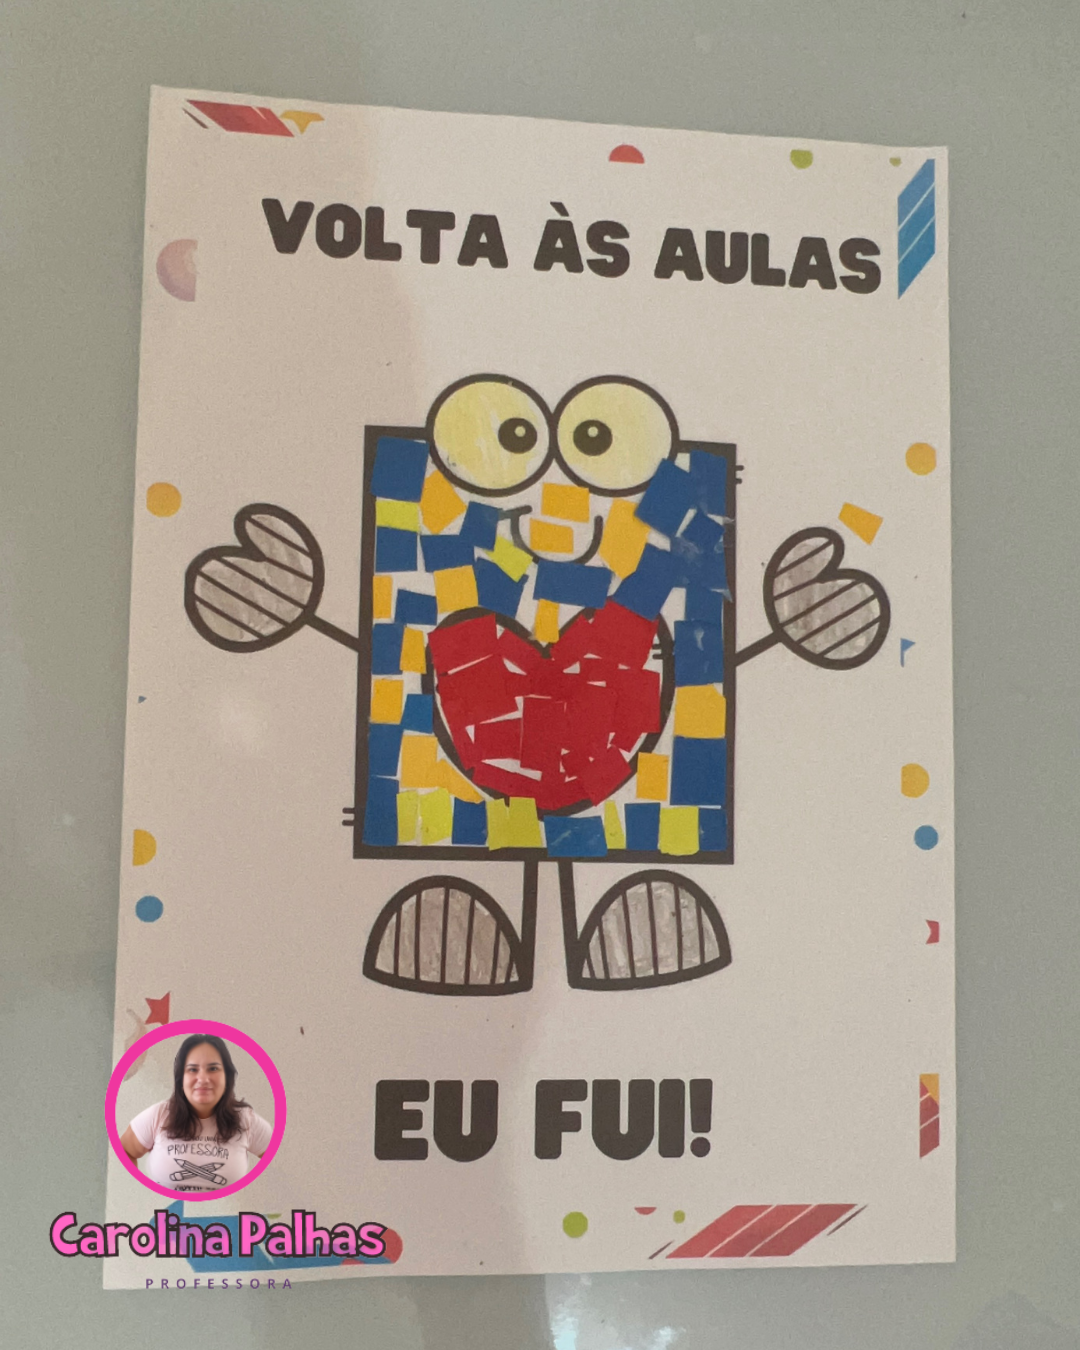 VOLTA ÀS AULAS
EU FUI!
PROFESSORA
Carolina Palhas
PROFESSORA